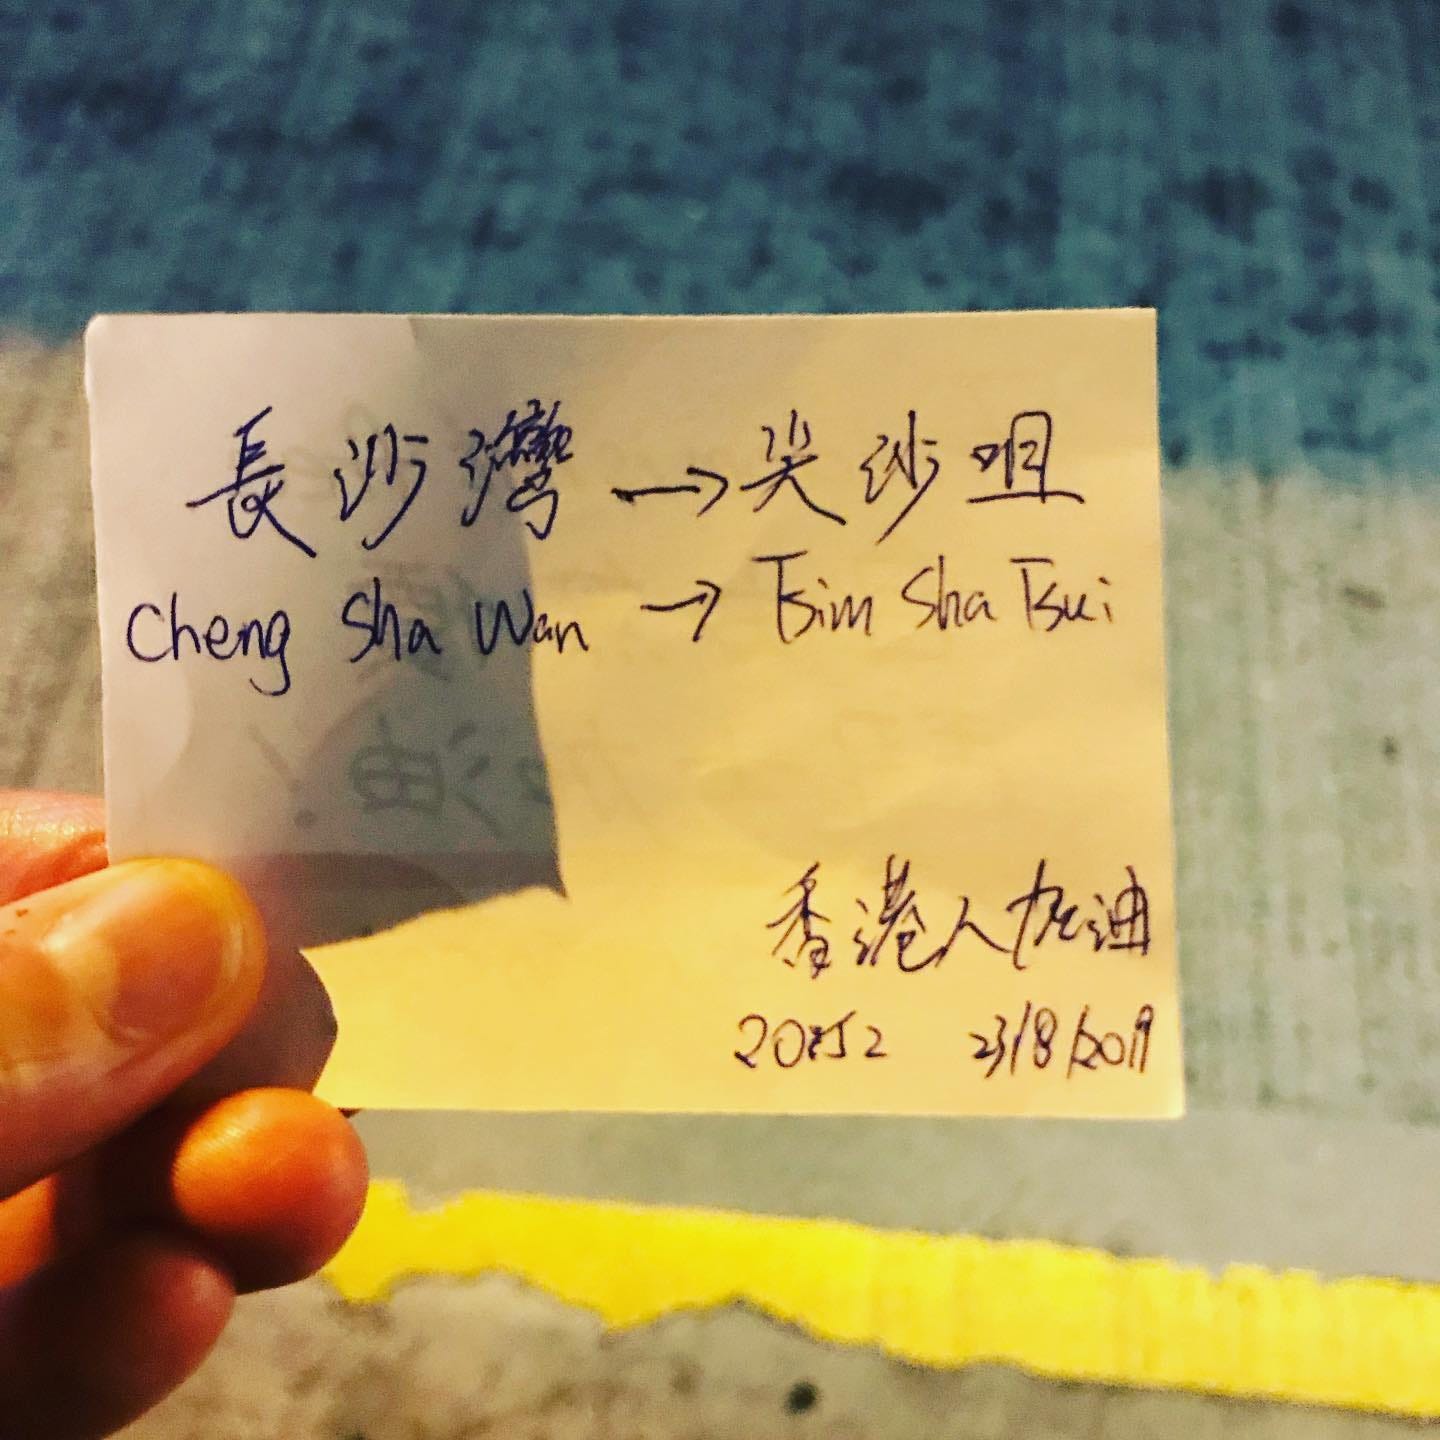 長沙灣 → 尖沙咀
Cheng Sha Wan → Tsim Sha Tsui
香港人加油
23/8/2019